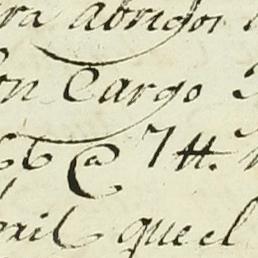 ra abrigos
on Cargo
66 @ 7 tt.
bril que el